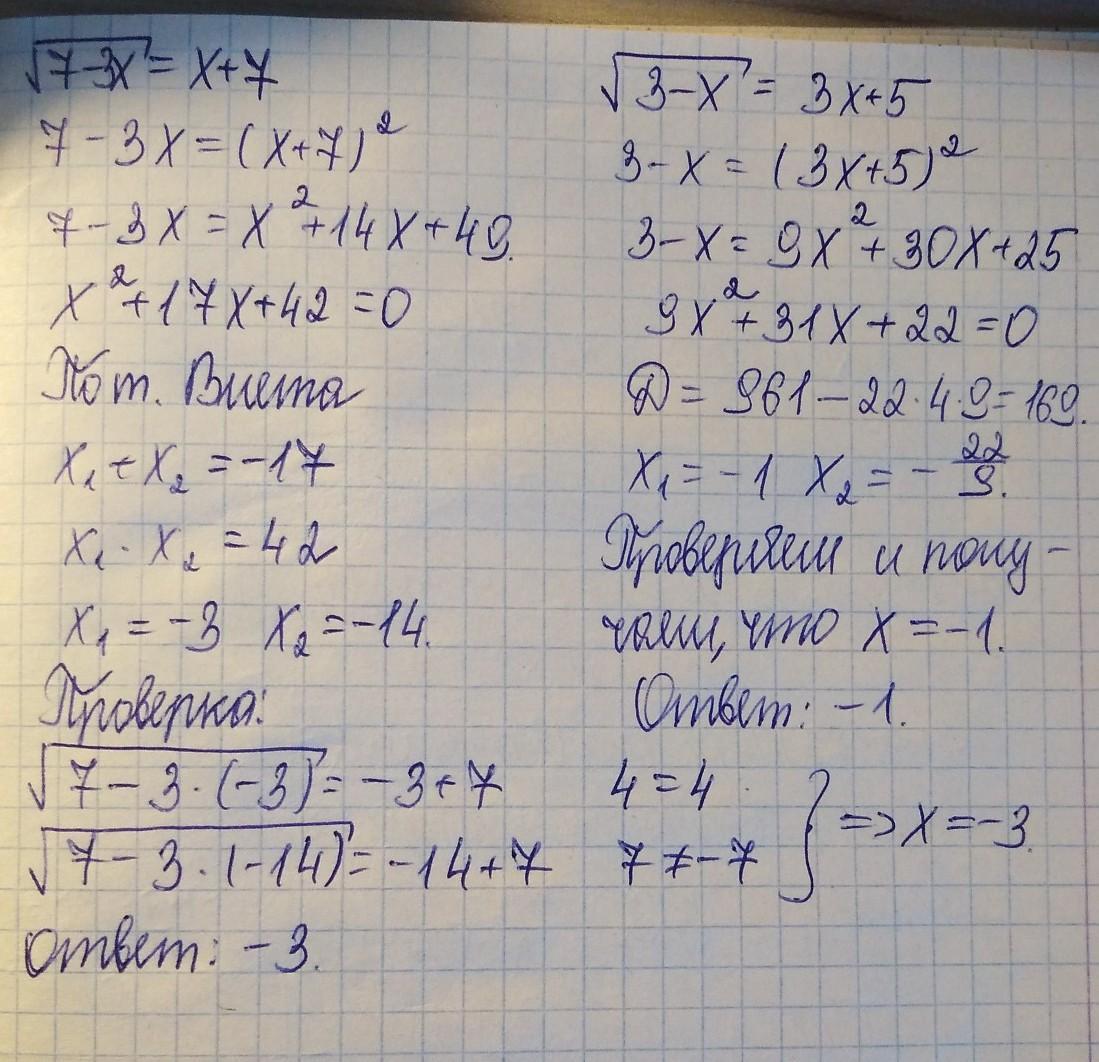 √(7-3x) = x+7
7 - 3x = (x+7)²
7 - 3x = x² + 14x + 49.
x² + 17x + 42 = 0
По т. Виета
x₁ + x₂ = -17
x₁ · x₂ = 42
x₁ = -3 x₂ = -14.
Проверка:
√(7 - 3·(-3)) = -3+7 4 = 4
√(7 - 3·(-14)) = -14+7 7 ≠ -7 } => x = -3.
Ответ: -3.
√(3-x) = 3x+5
3 - x = (3x+5)²
3 - x = 9x² + 30x + 25
9x² + 31x + 22 = 0
D = 961 - 22·4·9 = 169.
x₁ = -1 x₂ = -22/9.
Проверяем и полу-
чаем, что x = -1.
Ответ: -1.